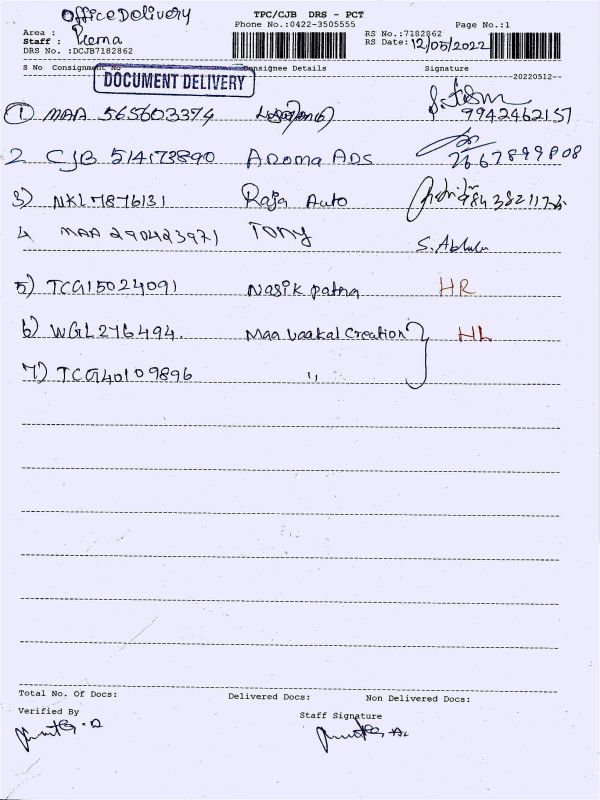 Office Delivery
TPC/CJB DRS - PCT
Phone No.:0422-3505555
Page No.:1
Area :
Staff : Prema
RS No.:7182862
DRS No. :DCJB7182862
RS Date: 12/05/2022
S No Consignment No Consignee Details Signature
--20220512--
DOCUMENT DELIVERY
1 MAA 565603374
9942462157
2 CJB 514173890 Aroma ADS
7667899808
3) NKL7876131 Raja Auto
4 MAA 290423971 Tony
5) TCG15024091 Nasik patna HR
6) WGL276494. Maa Vaakal Creation HL
7) TCG40109896 ,,
Total No. Of Docs: Delivered Docs: Non Delivered Docs:
Verified By
Staff Signature